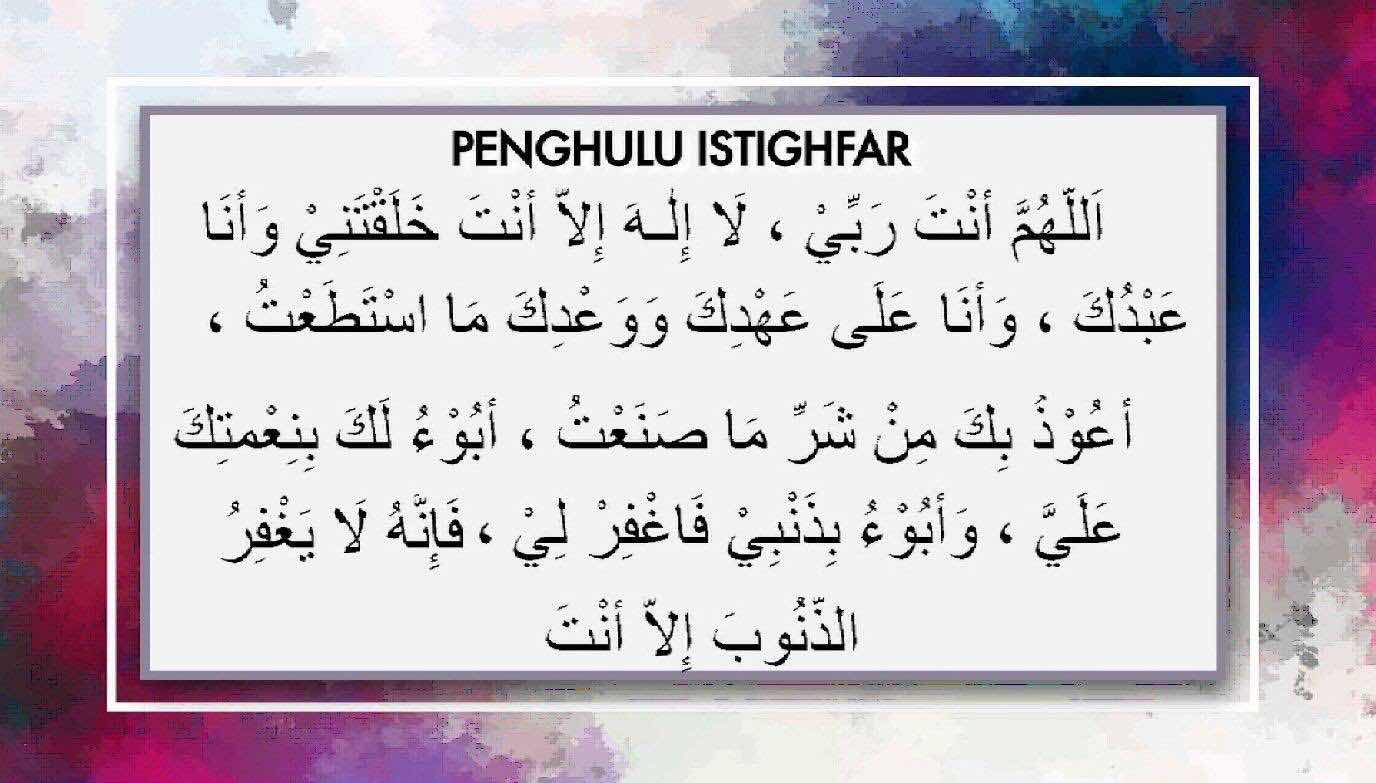 PENGHULU ISTIGHFAR
اَللَّهُمَّ أَنْتَ رَبِّيْ ، لَا إِلٰـهَ إِلاَّ أَنْتَ خَلَقْتَنِيْ وَأَنَا
عَبْدُكَ ، وَأَنَا عَلَى عَهْدِكَ وَوَعْدِكَ مَا اسْتَطَعْتُ ،
أَعُوْذُ بِكَ مِنْ شَرِّ مَا صَنَعْتُ ، أَبُوْءُ لَكَ بِنِعْمتِكَ
عَلَيَّ ، وَأَبُوْءُ بِذَنْبِيْ فَاغْفِرْ لِيْ ، فَإِنَّهُ لَا يَغْفِرُ
الذُّنُوبَ إِلاَّ أَنْتَ